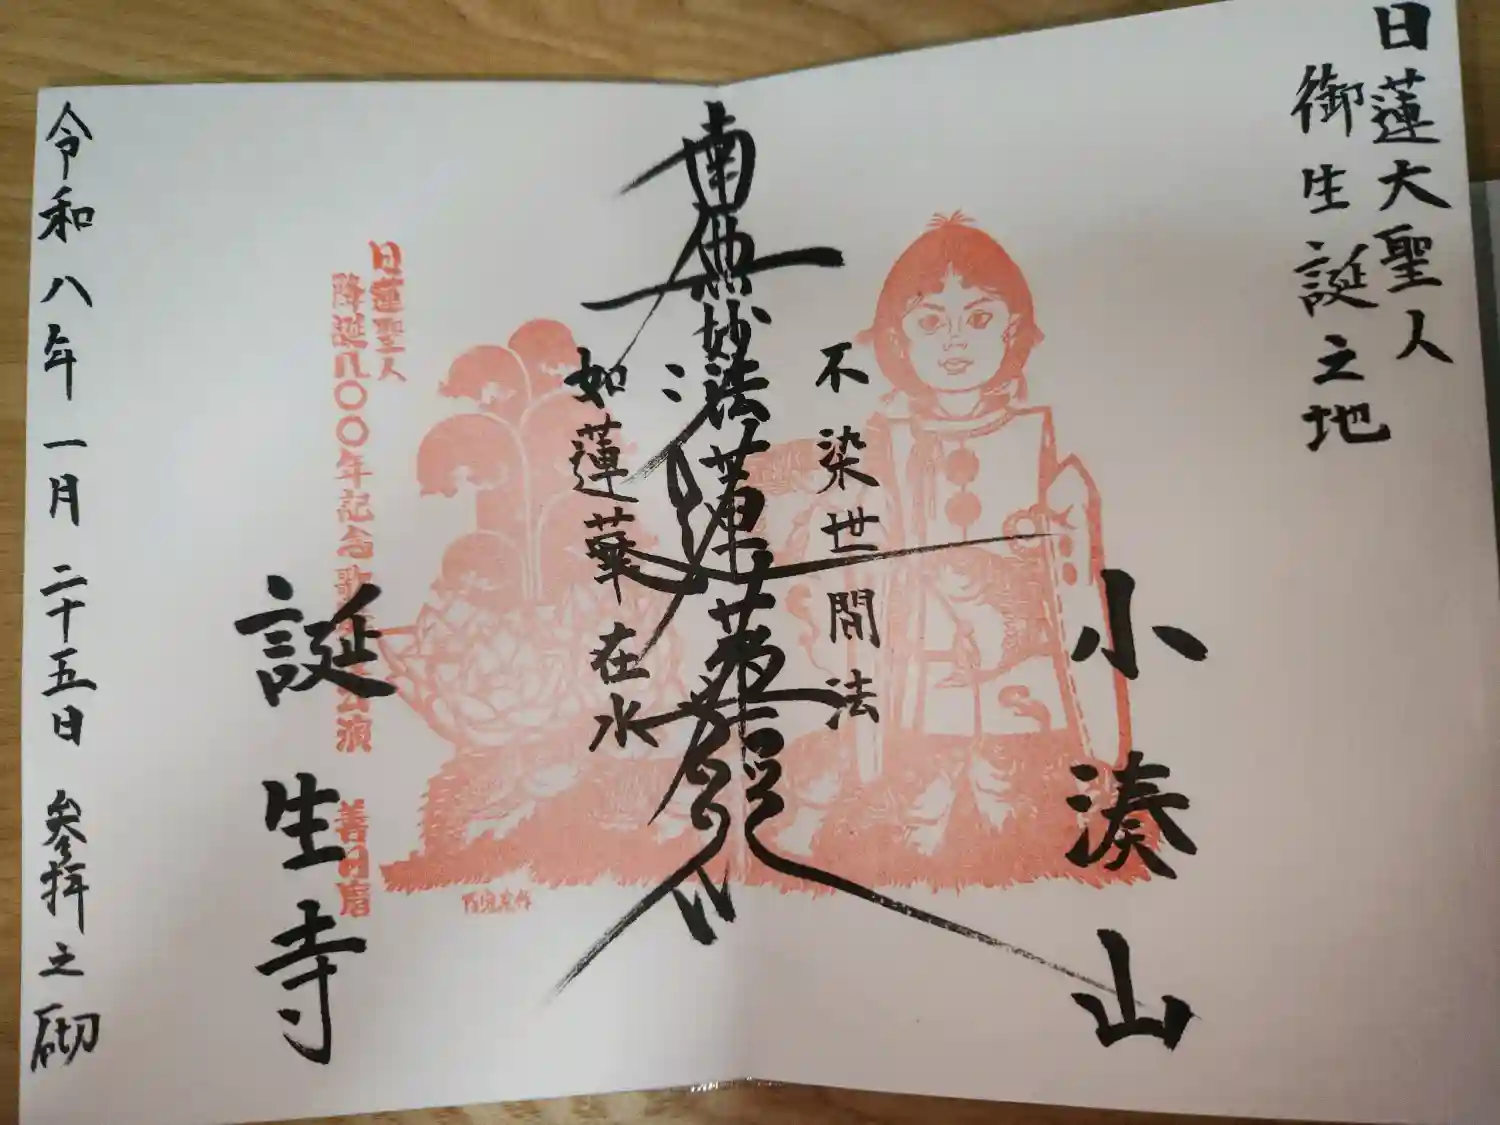 日蓮大聖人
御生誕之地
小湊山
不染世間法
南無妙法蓮華經
如蓮華在水
日蓮聖人
降誕八〇〇年記念歌 公演
誕生寺
令和八年一月二十五日 参拝之砌